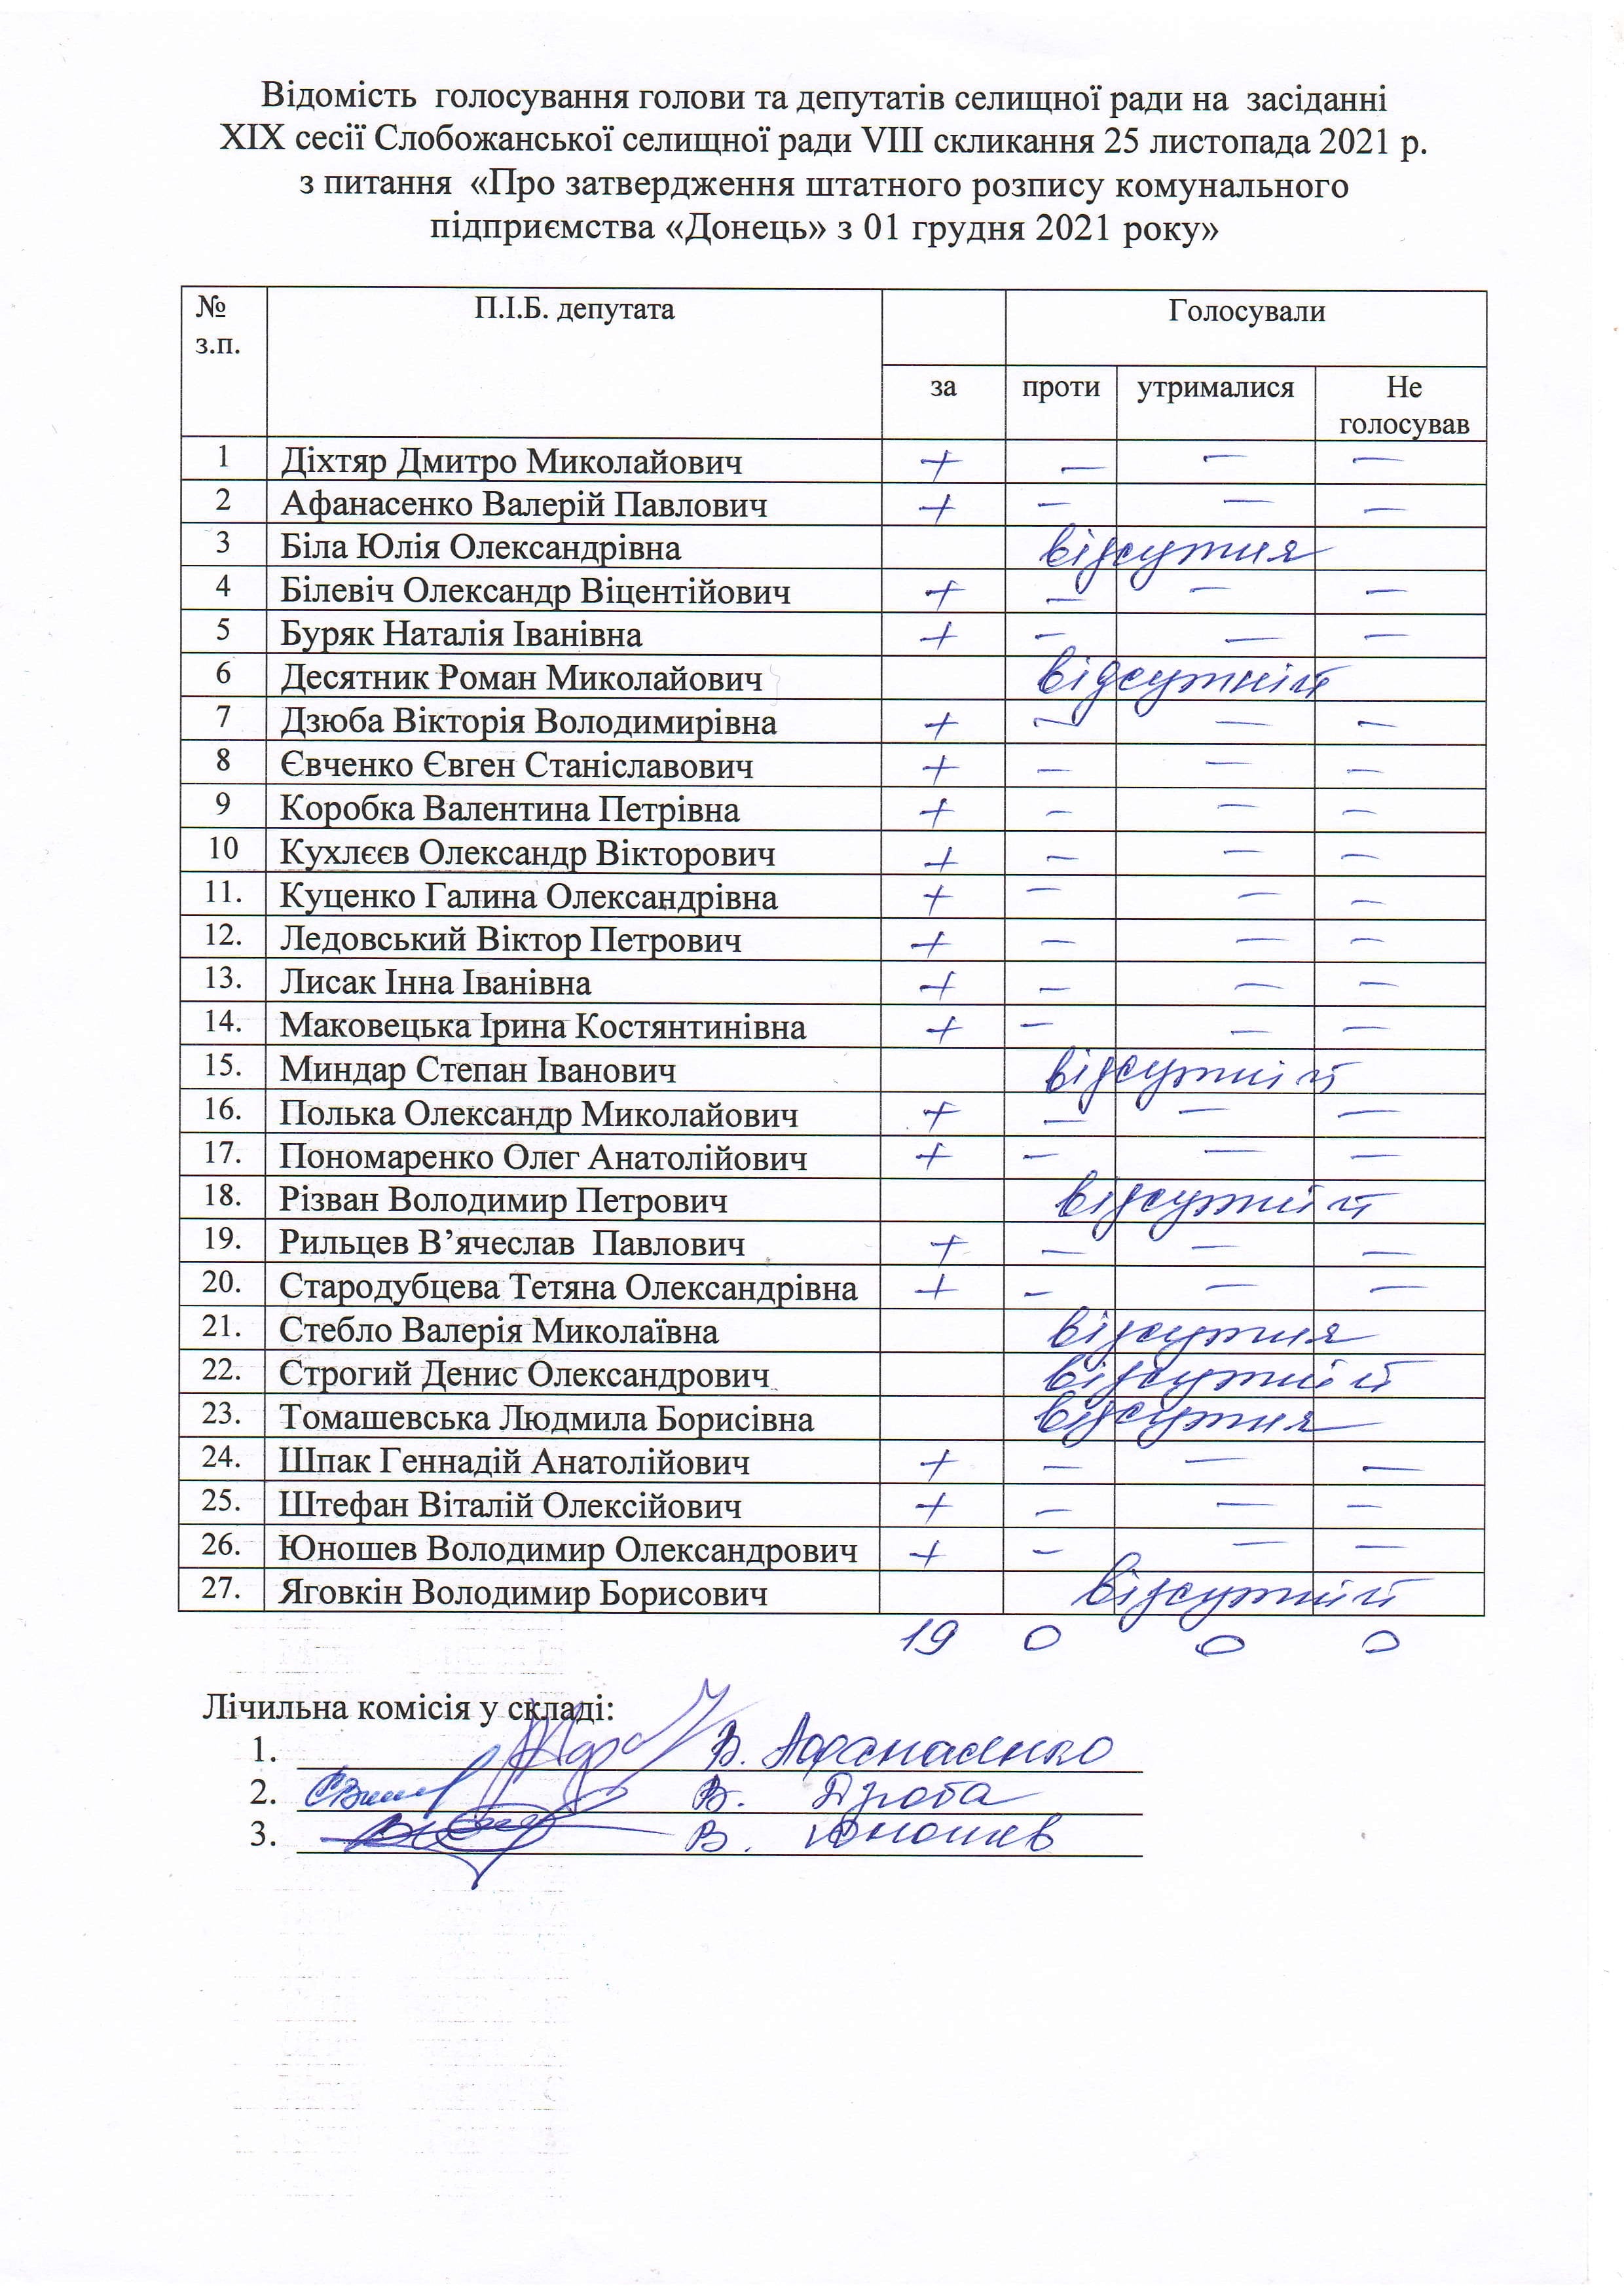 Відомість голосування голови та депутатів селищної ради на засіданні
XIX сесії Слобожанської селищної ради VIII скликання 25 листопада 2021 р.
з питання «Про затвердження штатного розпису комунального
підприємства «Донець» з 01 грудня 2021 року»
№ з.п. П.І.Б. депутата Голосували
за проти утрималися Не голосував
1 Діхтяр Дмитро Миколайович + – – –
2 Афанасенко Валерій Павлович + – – –
3 Біла Юлія Олександрівна відсутня
4 Білевіч Олександр Віцентійович + – – –
5 Буряк Наталія Іванівна + – – –
6 Десятник Роман Миколайович відсутній
7 Дзюба Вікторія Володимирівна + – – –
8 Євченко Євген Станіславович + – – –
9 Коробка Валентина Петрівна + – – –
10 Кухлєєв Олександр Вікторович + – – –
11. Куценко Галина Олександрівна + – – –
12. Ледовський Віктор Петрович + – – –
13. Лисак Інна Іванівна + – – –
14. Маковецька Ірина Костянтинівна + – – –
15. Миндар Степан Іванович відсутній
16. Полька Олександр Миколайович + – – –
17. Пономаренко Олег Анатолійович + – – –
18. Різван Володимир Петрович відсутній
19. Рильцев В’ячеслав Павлович + – – –
20. Стародубцева Тетяна Олександрівна + – – –
21. Стебло Валерія Миколаївна відсутня
22. Строгий Денис Олександрович відсутній
23. Томашевська Людмила Борисівна відсутня
24. Шпак Геннадій Анатолійович + – – –
25. Штефан Віталій Олексійович + – – –
26. Юношев Володимир Олександрович + – – –
27. Яговкін Володимир Борисович відсутній
19 0 0 0
Лічильна комісія у складі:
1. В. Афанасенко
2. В. Дзюба
3. В. Юношев